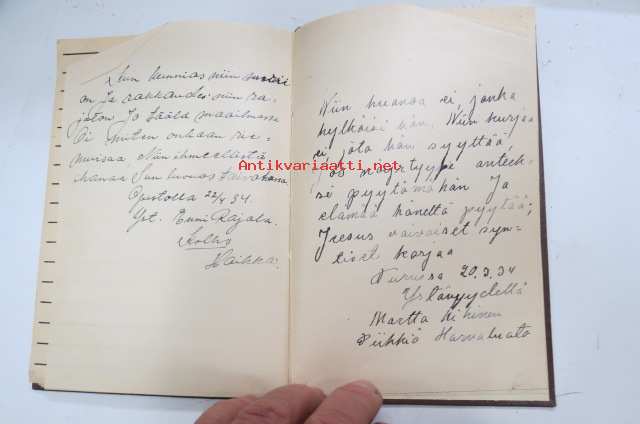 Sun kunnias niin suuri
on ja rakkaudes niin ra-
jaton. Jo täälä maailmassa
Oi miten onkaan rie-
muisaa. Niin ihmeellistä
kanas Sun luonas taivahassa
Opistolla 22/X 34.
Yst. Enni Rajala.
Kolho
Haikka.
Niin huonoa ei, jonka
hylkäisi hän. Niin kurjaa
ei, jota hän syyttää,
jos nöyrtyypi anteek-
si pyytämähän Ja
elämää häneltä pyytää;
Jeesus vaivaiset syn-
tiset korjaa
Turussa 20.3.34
Ystävyydellä
Martta
Piikkiö Harvaluoto
Antikvariaatti.net